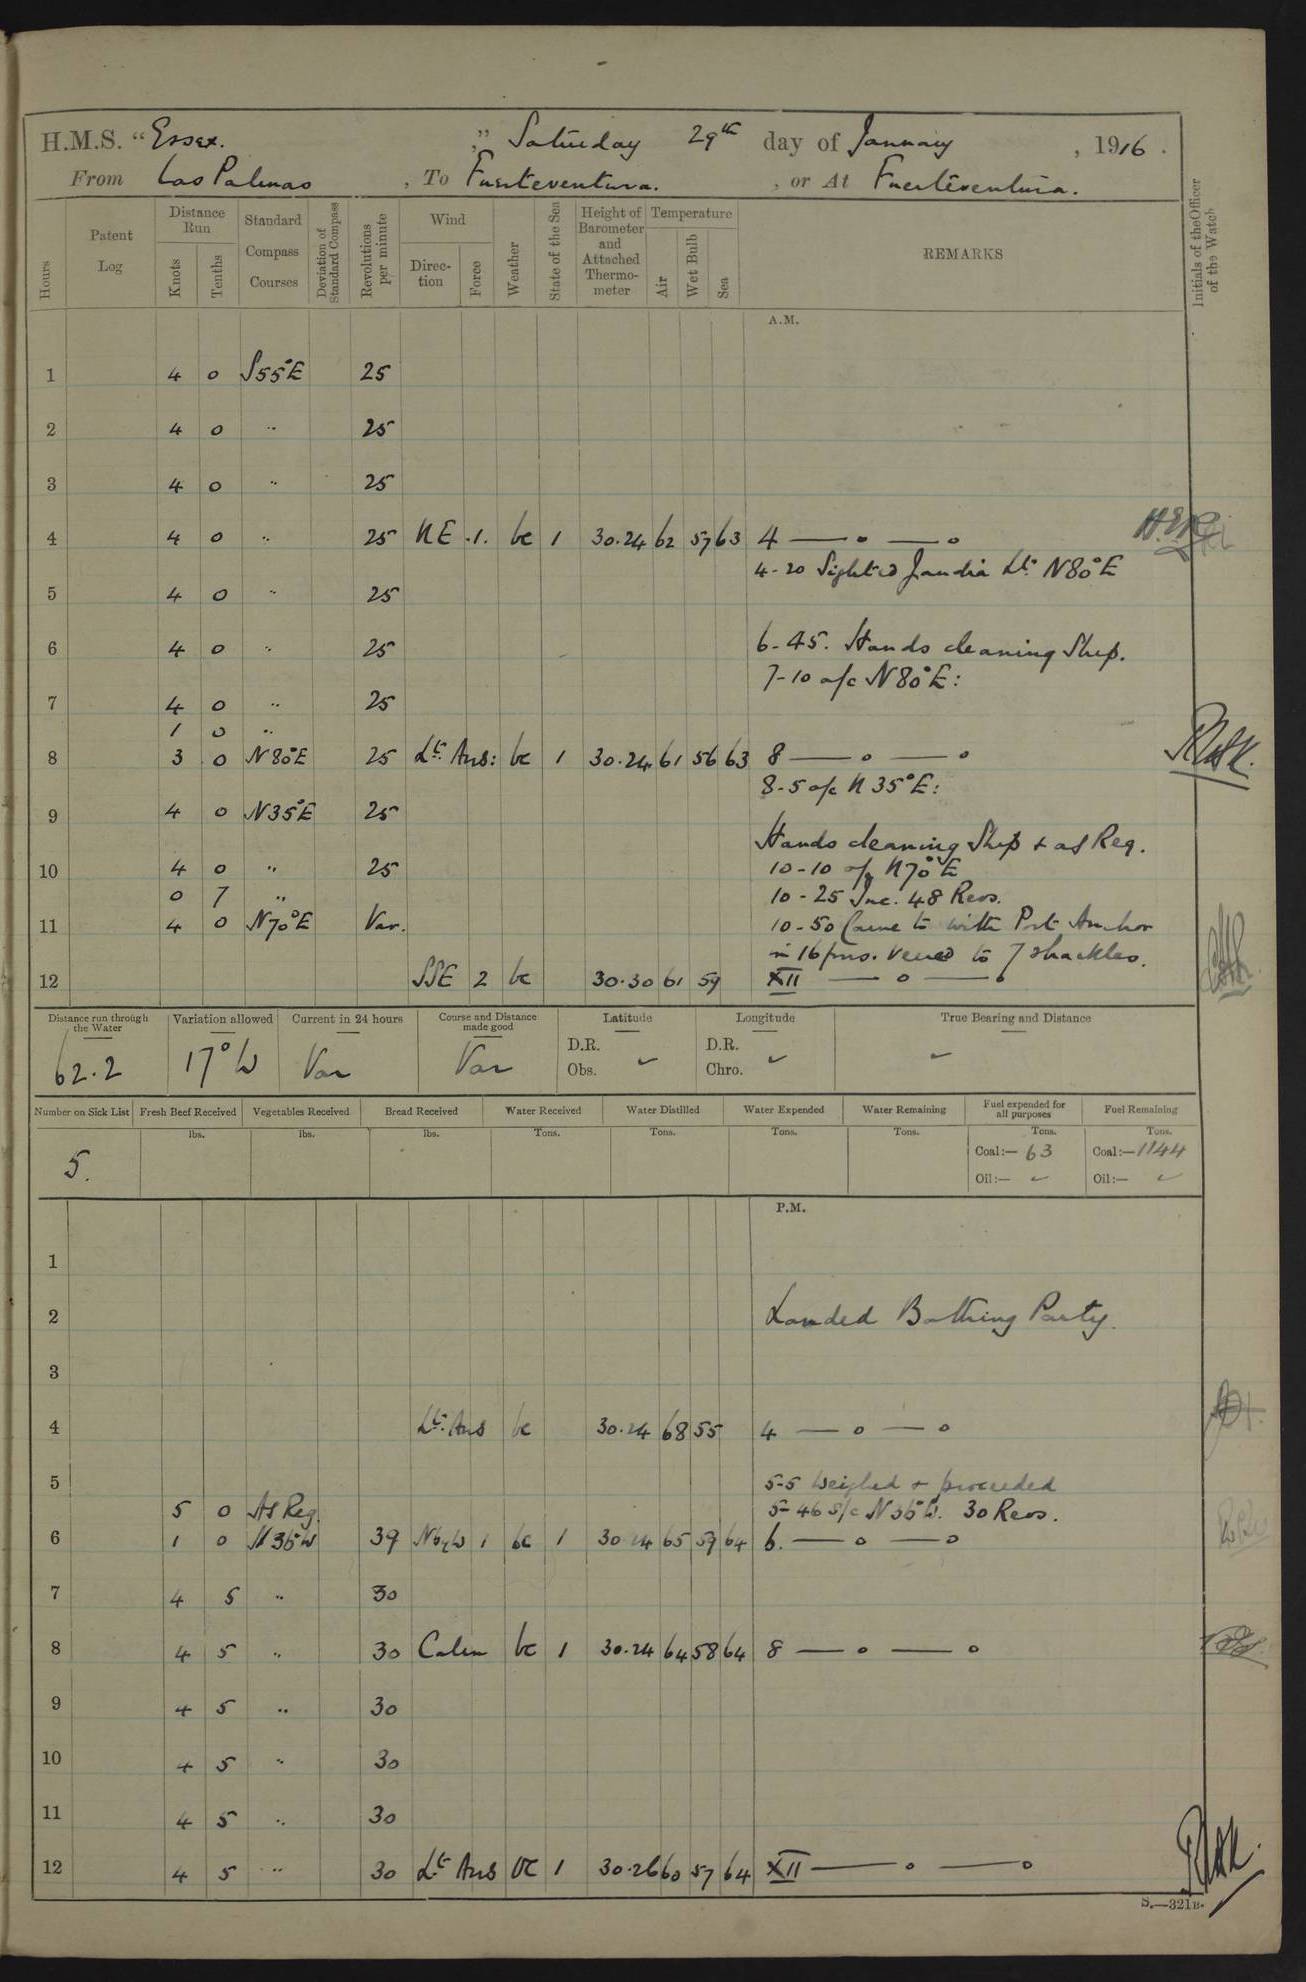 H.M.S. "Essex." Saturday 29th day of January, 1916.
From Las Palmas, To Fuerteventura., or At Fuerteventura.
Hours
Patent Log
Distance Run
Knots
Tenths
Standard Compass Courses
Deviation of Standard Compass
Revolutions per minute
Wind
Direction
Force
Weather
State of the Sea
Height of Barometer and Attached Thermometer
Temperature
Air
Wet Bulb
Sea
REMARKS
Initials of the Officer of the Watch
A.M.
1 4 0 S55°E 25
2 4 0 " 25
3 4 0 " 25
4 4 0 " 25 NE .1. bc 1 30.24 62 57 63 4 — o — o
4-20 Sighted Jandia Lt. N80°E
5 4 0 " 25
6 4 0 " 25 6-45. Hands cleaning Ship.
7-10 a/c N80°E:
7 4 0 " 25
1 0 "
8 3 0 N80°E 25 Lt. Airs: bc 1 30.24 61 56 63 8 — o — o
8-5 a/c N35°E:
9 4 0 N35°E 25
Hands cleaning Ship + as Req.
10 4 0 " 25 10-10 a/c N70°E
0 7 " 10-25 Inc. 48 Revs.
11 4 0 N70°E Var. 10-50 Came to with Port Anchor
in 16 fms. veered to 7 shackles.
12 SSE 2 bc 30.30 61 59 XII — o — o
Distance run through the Water
Variation allowed
Current in 24 hours
Course and Distance made good
Latitude
Longitude
True Bearing and Distance
62.2 17°W Var Var
D.R. ✓ D.R. ✓ ✓
Obs. Chro.
Number on Sick List
Fresh Beef Received
Vegetables Received
Bread Received
Water Received
Water Distilled
Water Expended
Water Remaining
Fuel expended for all purposes
Fuel Remaining
lbs. lbs. lbs. Tons. Tons. Tons. Tons. Tons. Tons.
5. Coal:— 63 Coal:— 1144
Oil:— ✓ Oil:— ✓
P.M.
1
2 Landed Bathing Party.
3
4 Lt. Airs bc 30.24 68 55 4 — o — o
5 5-5 Weighed + proceeded
5 0 As Req. 5-46 S/c N36°W. 30 Revs.
6 1 0 N36°W 39 NbyW 1 bc 1 30.24 65 59 64 6. — o — o
7 4 5 " 30
8 4 5 " 30 Calm bc 1 30.24 64 58 64 8 — o — o
9 4 5 " 30
10 4 5 " 30
11 4 5 " 30
12 4 5 " 30 Lt Airs bc 1 30.26 60 57 64 XII — o — o
S.—321B.